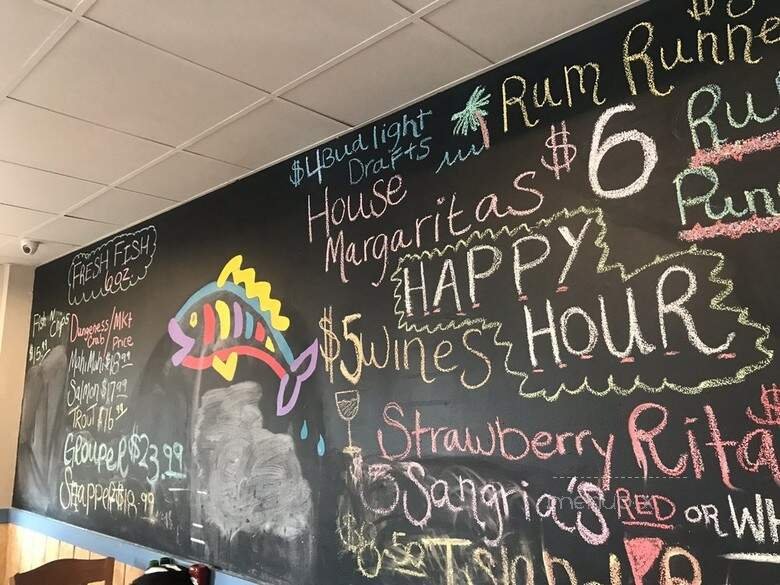 FRESH FISH
6oz.
Fish N Chips
$15.99
Dungeness/Mkt
Crab Price
Mahi Mahi $18.99
Salmon $17.99
Trout $16.99
Grouper $23.99
Snapper $18.99
$4 Bud light
Drafts
House
Margaritas $6
HAPPY
HOUR
$5 wines
Rum Runne
Ru
Pun
Strawberry Rita
Sangria's RED OR WH